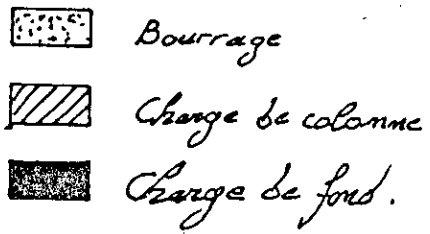 Bourrage
Charge de colonne
Charge de fond.